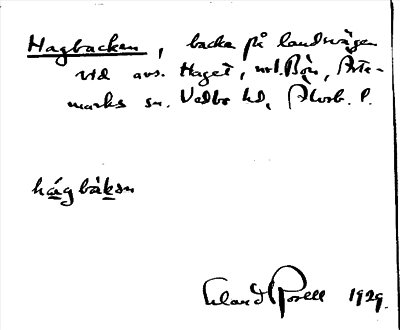 Hagbacken, backe på landsvägen
vid avs. Haget, url. Bön, Arte-
marks sn. Vedbo hd, Älvsb. l.
hágbàksn
Erland Rosell 1929.